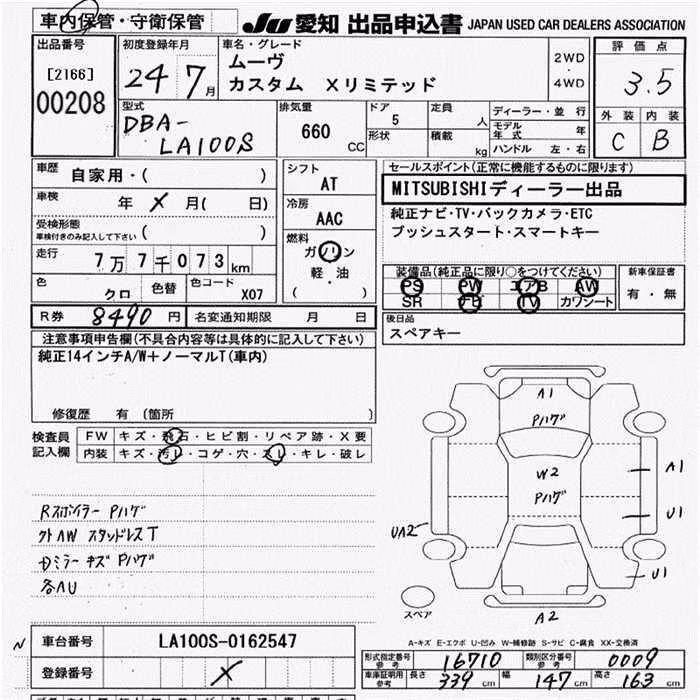 車内保管・守衛保管
JU 愛知 出品申込書 JAPAN USED CAR DEALERS ASSOCIATION
出品番号
[2166]
00208
初度登録年月
24 7月
車名・グレード
ムーヴ
カスタム Xリミテッド
2WD
・
4WD
評価点
3.5
外装 内装
C B
型式
DBA-
LA100S
排気量
660
CC
ドア
5
形状
定員
人
積載
kg
ディーラー・並行
モデル年式 年
ハンドル 左・右
車歴
自家用・( )
車検
年 X 月( 日)
受検形態
車検付きのみ記入して下さい ( )
走行
7万7千073km
色
クロ
色替
色コード
X07
シフト
AT
冷房
AAC
燃料
ガソリン
軽・油
( )
セールスポイント(正常に機能するものに限ります)
MITSUBISHIディーラー出品
純正ナビ・TV・バックカメラ・ETC
プッシュスタート・スマートキー
装備品(純正品に限り○をつけてください)
PS PW エアB AW
SR TV カワシート
新車保証書
有・無
R券 8490円 名変通知期限 月 日
後日品
スペアキー
注意事項申告欄(不具合内容等は具体的に記入して下さい)
純正14インチA/W+ノーマルT(車内)
修復歴 有 (箇所 )
検査員
記入欄
FW キズ・飛石・ヒビ割・リペア跡・X要
内装 キズ・汚レ・コゲ・穴・スレ・キレ・破レ
Rスポイラー Pハゲ
クトAW スタッドレスT
Dミラー キズ Pハゲ
各AU
A1
Pハゲ
W2
Pハゲ
A1
U1
UA2
U1
A2
スペア
A-キズ E-エクボ U-凹み W-補修跡 S-サビ C-腐食 XX-交換済
N
車台番号
LA100S-0162547
登録番号
X
形式指定番号
参考
16710
類別区分番号
参考
0009
車庫証明用
参考
長さ 339 cm 幅 147 cm 高さ 163 cm